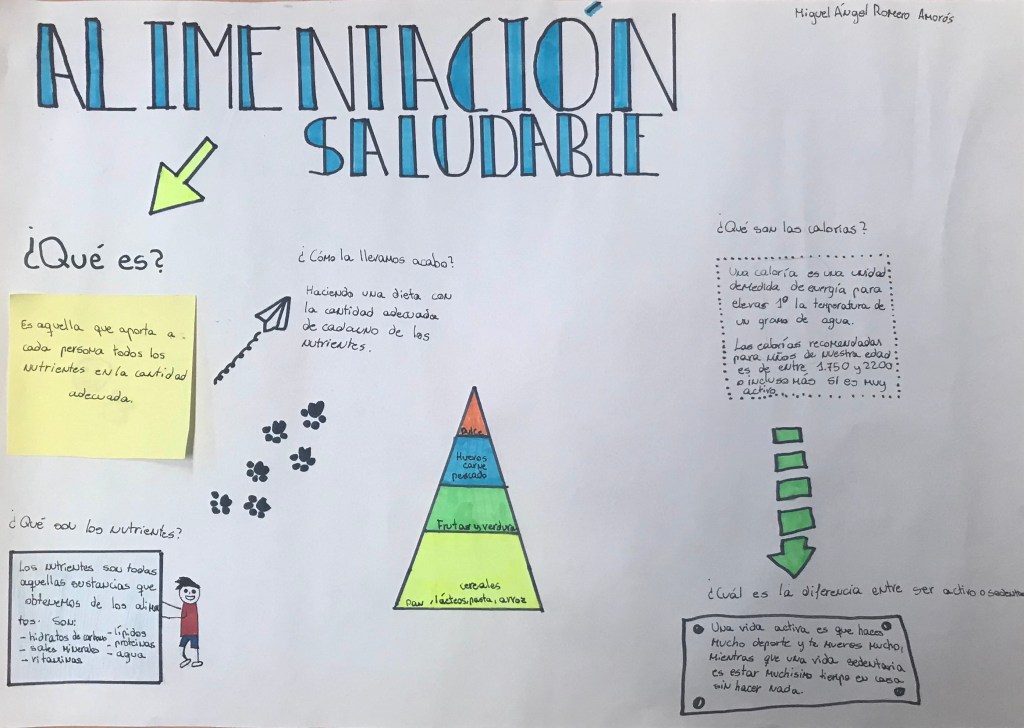 Miguel Ángel Romero Amorós
ALIMENTACIÓN
SALUDABLE
¿Qué es?
Es aquella que aporta a
cada persona todos los
nutrientes en la cantidad
adecuada.
¿Cómo la llevamos acabo?
Haciendo una dieta con
la cantidad adecuada
de cadauno de los
nutrientes.
¿Qué son los nutrientes?
Los nutrientes son todas
aquellas sustancias que
obtenemos de los alimen
tos. SON:
- hidratos de carbono
- sales minerales
- vitaminas
- lípidos
- proteínas
- agua
Dulce
Huevos
carne
pescado
Frutas y verdura
cereales
pan, lácteos, pasta, arroz
¿Qué son las calorías?
Una caloría es una unidad
demedida de energía para
elevar 1º la temperatura de
un gramo de agua.
Las calorías recomendadas
para niños de nuestra edad
es de entre 1.750 y 2200
o incluso más si es muy
activo.
¿Cuál es la diferencia entre ser activo o sedentario
Una vida activa es que haces
mucho deporte y te mueves mucho,
mientras que una vida sedentaria
es estar muchísimo tiempo en casa
sin hacer nada.